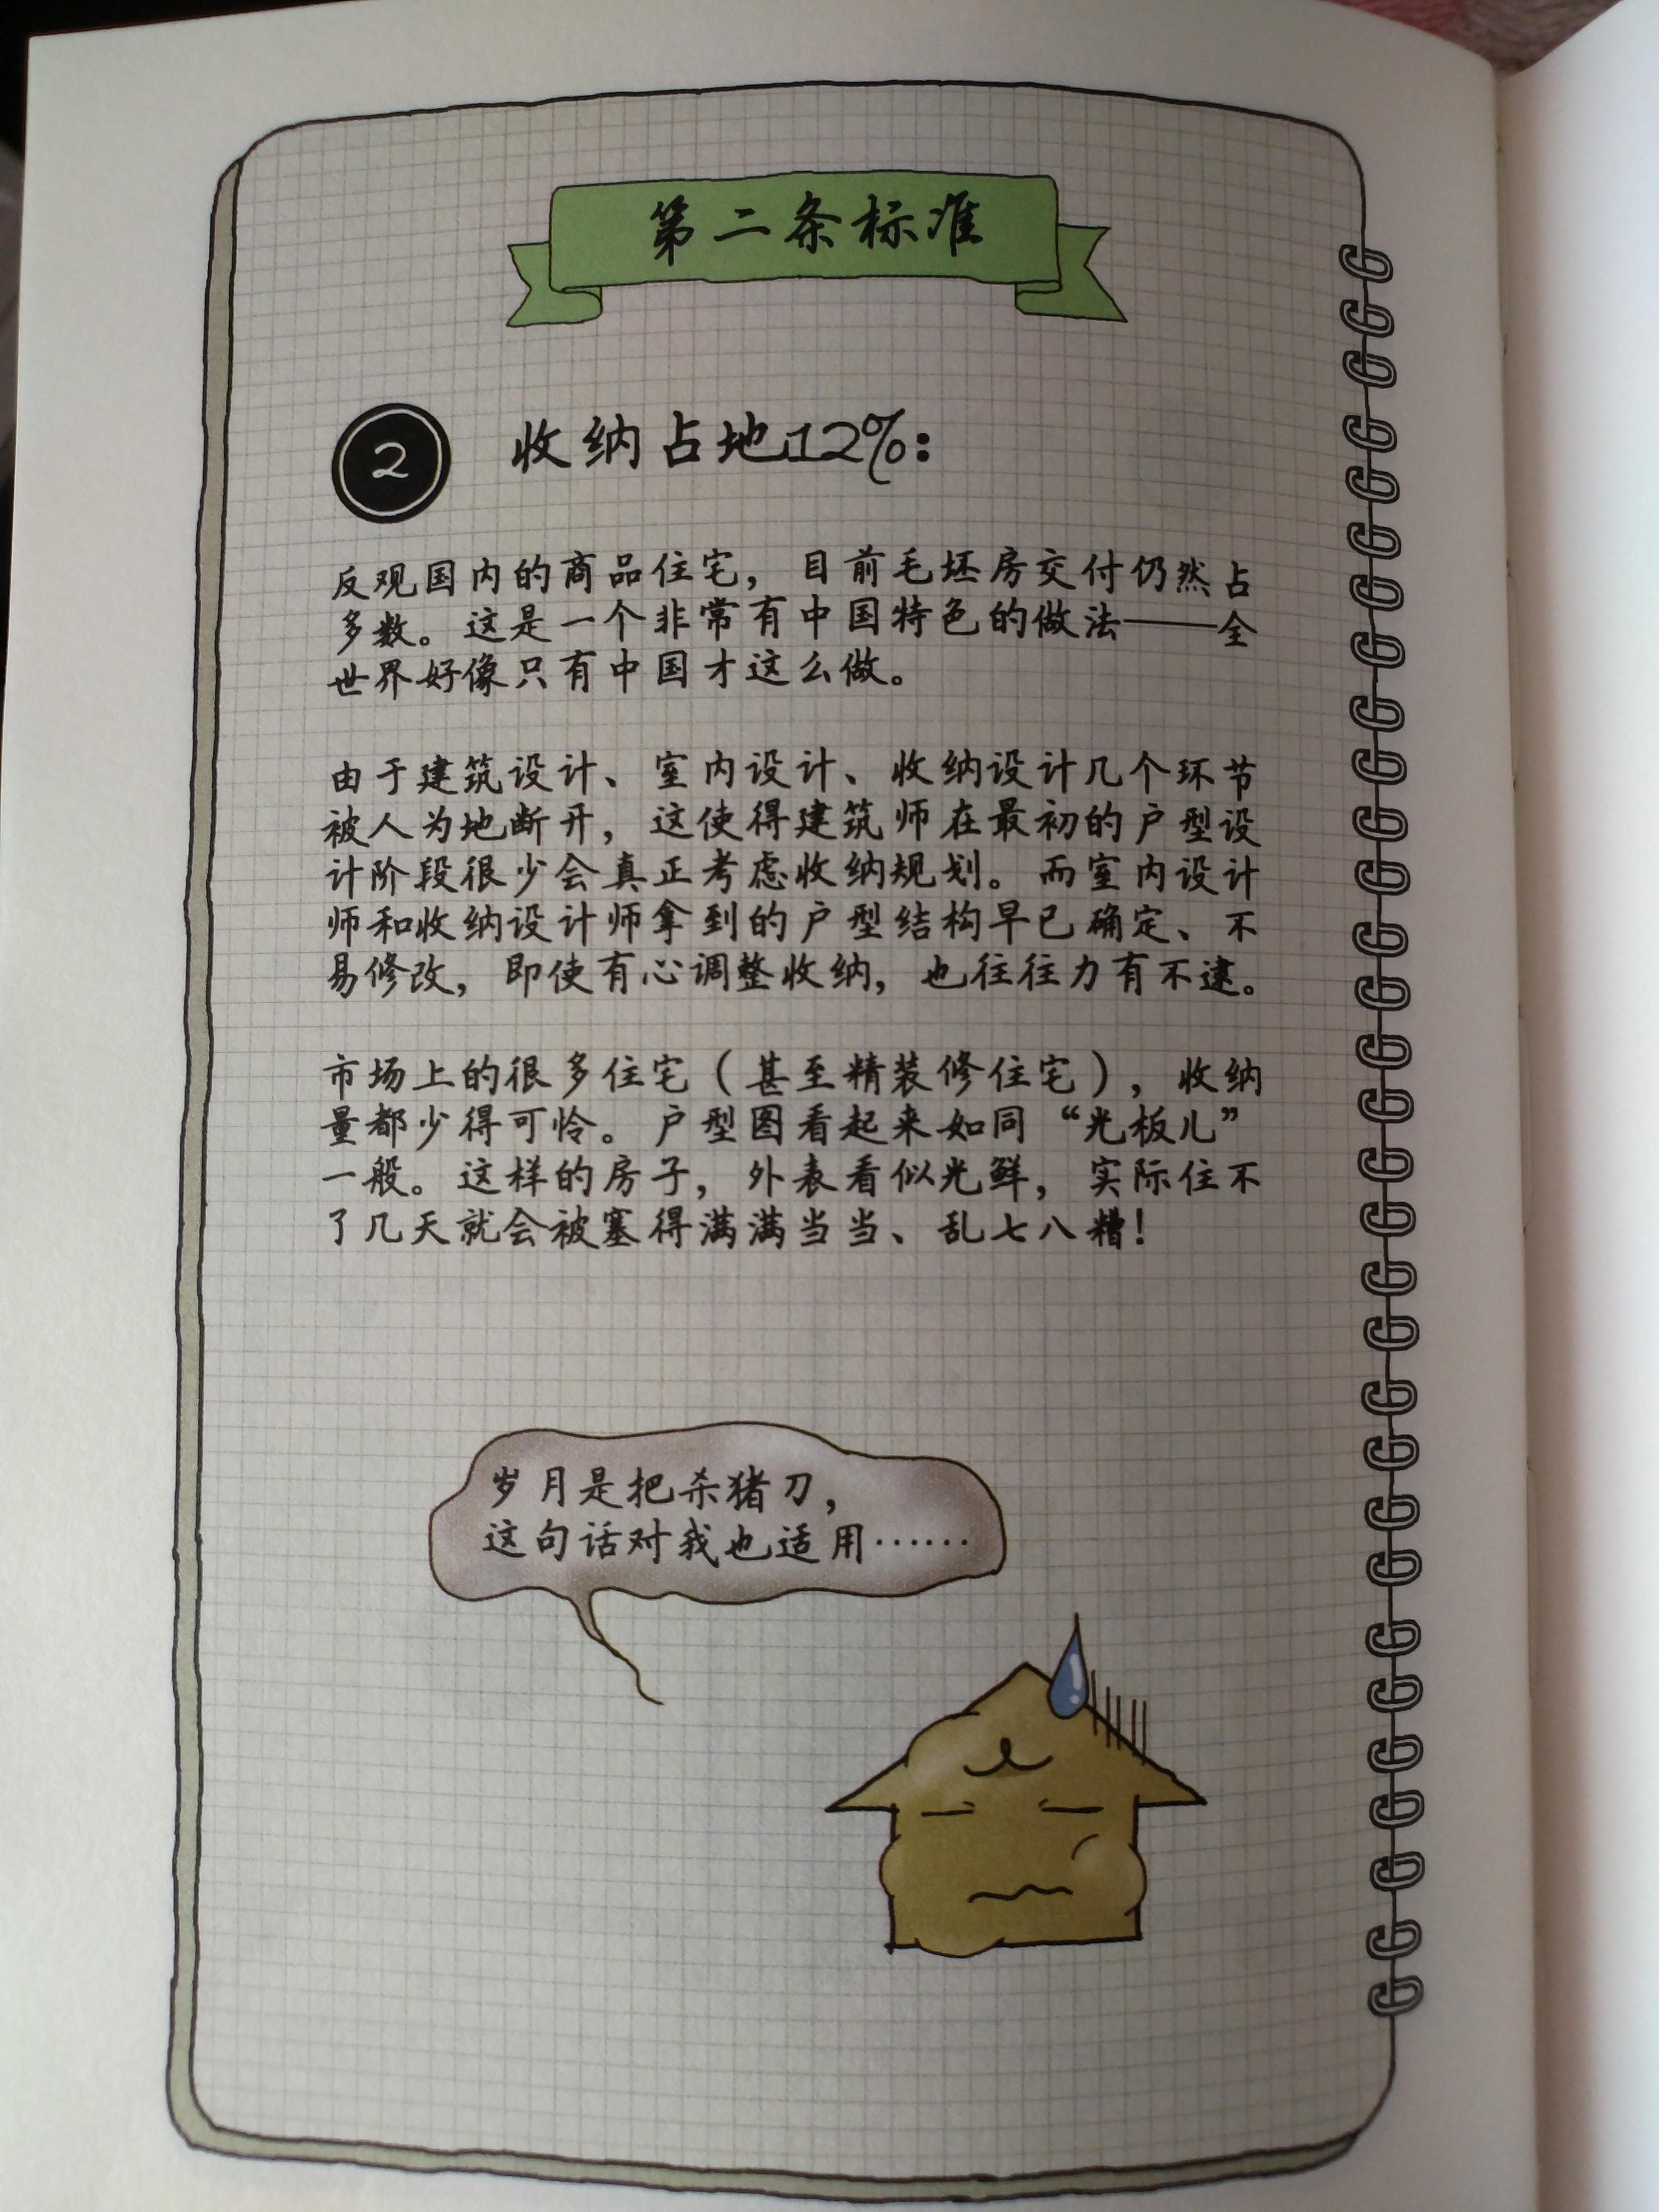 第二条标准
2
收纳占地12%：
反观国内的商品住宅，目前毛坯房交付仍然占
多数。这是一个非常有中国特色的做法——全
世界好像只有中国才这么做。
由于建筑设计、室内设计、收纳设计几个环节
被人为地断开，这使得建筑师在最初的户型设
计阶段很少会真正考虑收纳规划。而室内设计
师和收纳设计师拿到的户型结构早已确定、不
易修改，即使有心调整收纳，也往往力有不逮。
市场上的很多住宅（甚至精装修住宅），收纳
量都少得可怜。户型图看起来如同“光板儿”
一般。这样的房子，外表看似光鲜，实际住不
了几天就会被塞得满满当当、乱七八糟！
岁月是把杀猪刀，
这句话对我也适用……